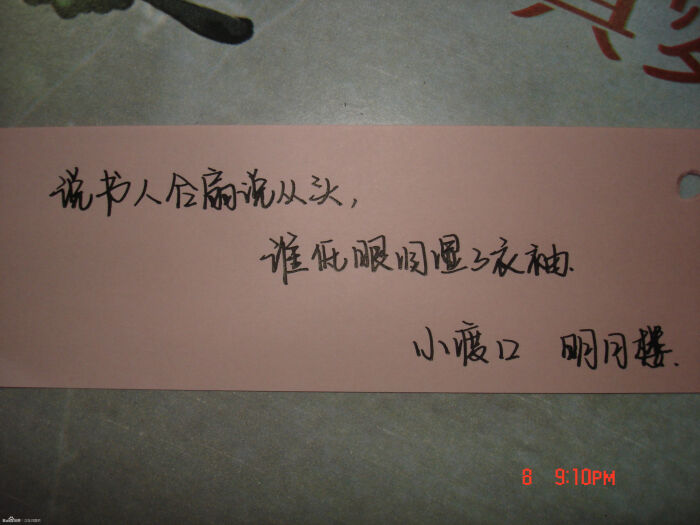 说书人合扇说从头，
谁低眼泪湿了衣袖.
小渡口 明月楼.
8 9:10PM